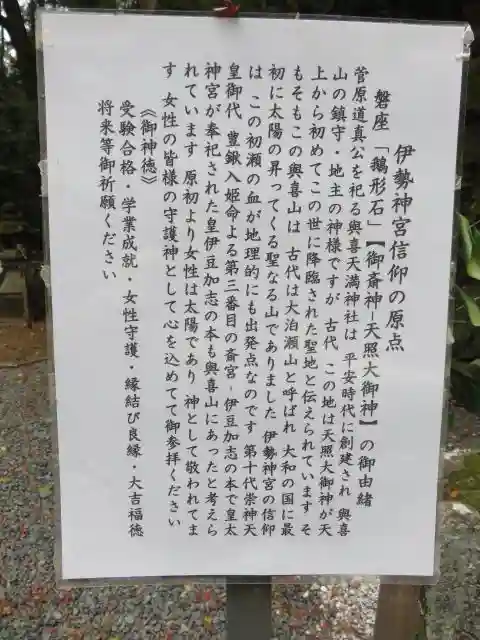 伊勢神宮信仰の原点
磐座「鵝形石」【御斎神−天照大御神】の御由緒
菅原道真公を祀る與喜天満神社は 平安時代に創建され 與喜
山の鎮守・地主の神様ですが 古代 この地は天照大御神が天
上から初めてこの世に降臨された聖地と伝えられています そ
もそもこの與喜山は 古代は大泊瀬山と呼ばれ 大和の国に最
初に太陽の昇ってくる聖なる山でありました 伊勢神宮の信仰
は この初瀬の血が地理的にも出発点なのです 第十代崇神天
皇御代 豊鍬入姫命よる第三番目の斎宮−伊豆加志の本で皇太
神宮が奉祀された皇伊豆加志の本も與喜山にあったと考えら
れています 原初より女性は太陽であり 神として敬われてま
す 女性の皆様の守護神として心を込めてて御参拝ください
《御神徳》
受験合格・学業成就・女性守護・縁結び良縁・大吉福徳
将来等御祈願ください